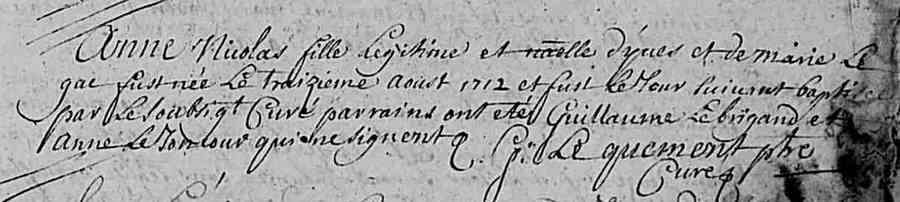 Anne Nicolas fille Legitime et naelle d'yves et de marie Le
gac fust née Le traizieme aoust 1712 et fust le Jour suivant baptisée
par Le soubsigt Curé parrains ont etés Guillaume Le brigand et
anne le Joncour qui ne signent G: Le quement ptre
Curé